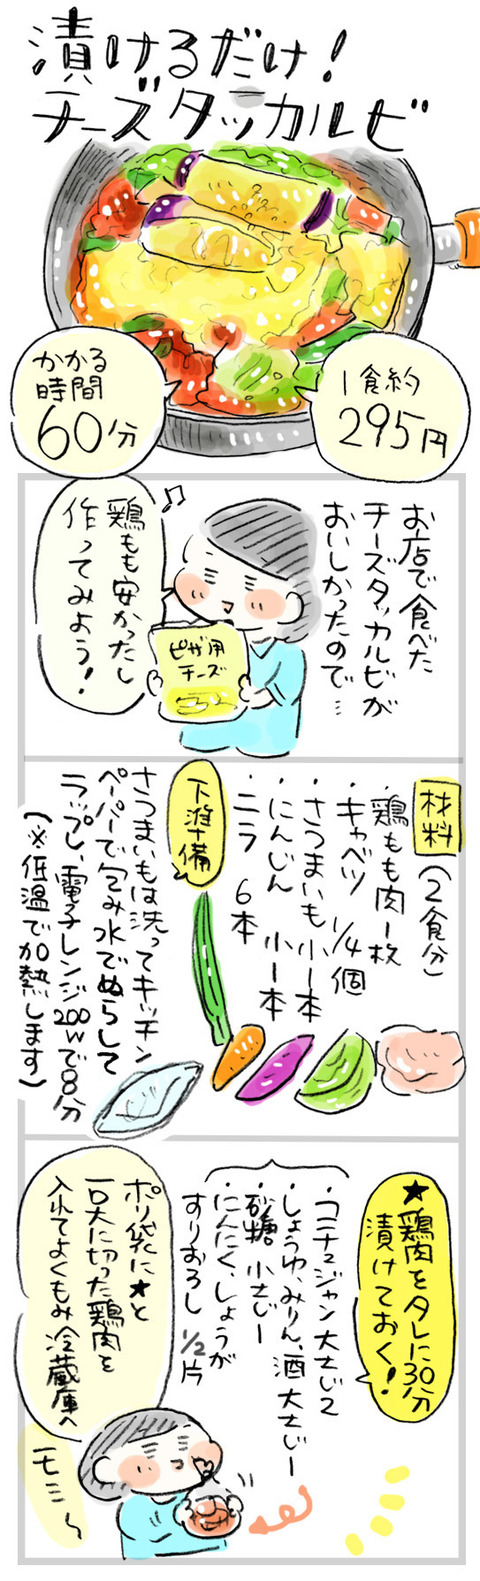 漬けるだけ!
チーズタッカルビ
かかる
時間
60分
1食約
295円
お店で食べた
チーズタッカルビが
おいしかったので…
鶏もも安かったし
作ってみよう!
ピザ用
チーズ
材料(2食分)
・鶏もも肉一枚
・キャベツ 1/4個
・さつまいも小一本
・にんじん 小一本
・ニラ 6本
下準備
さつまいもは洗ってキッチン
ペーパーで包み水でぬらして
ラップし、電子レンジ200wで8分
(※低温で加熱します)
★鶏肉をタレに30分
漬けておく!
・コチュジャン大さじ2
・しょうゆ、みりん、酒 大さじ一
・砂糖 小さじ一
・にんにく、しょうが
すりおろし 1/2片
ポリ袋に★と
一口大に切った鶏肉を
入れてよくもみ冷蔵庫へ
モミ〜